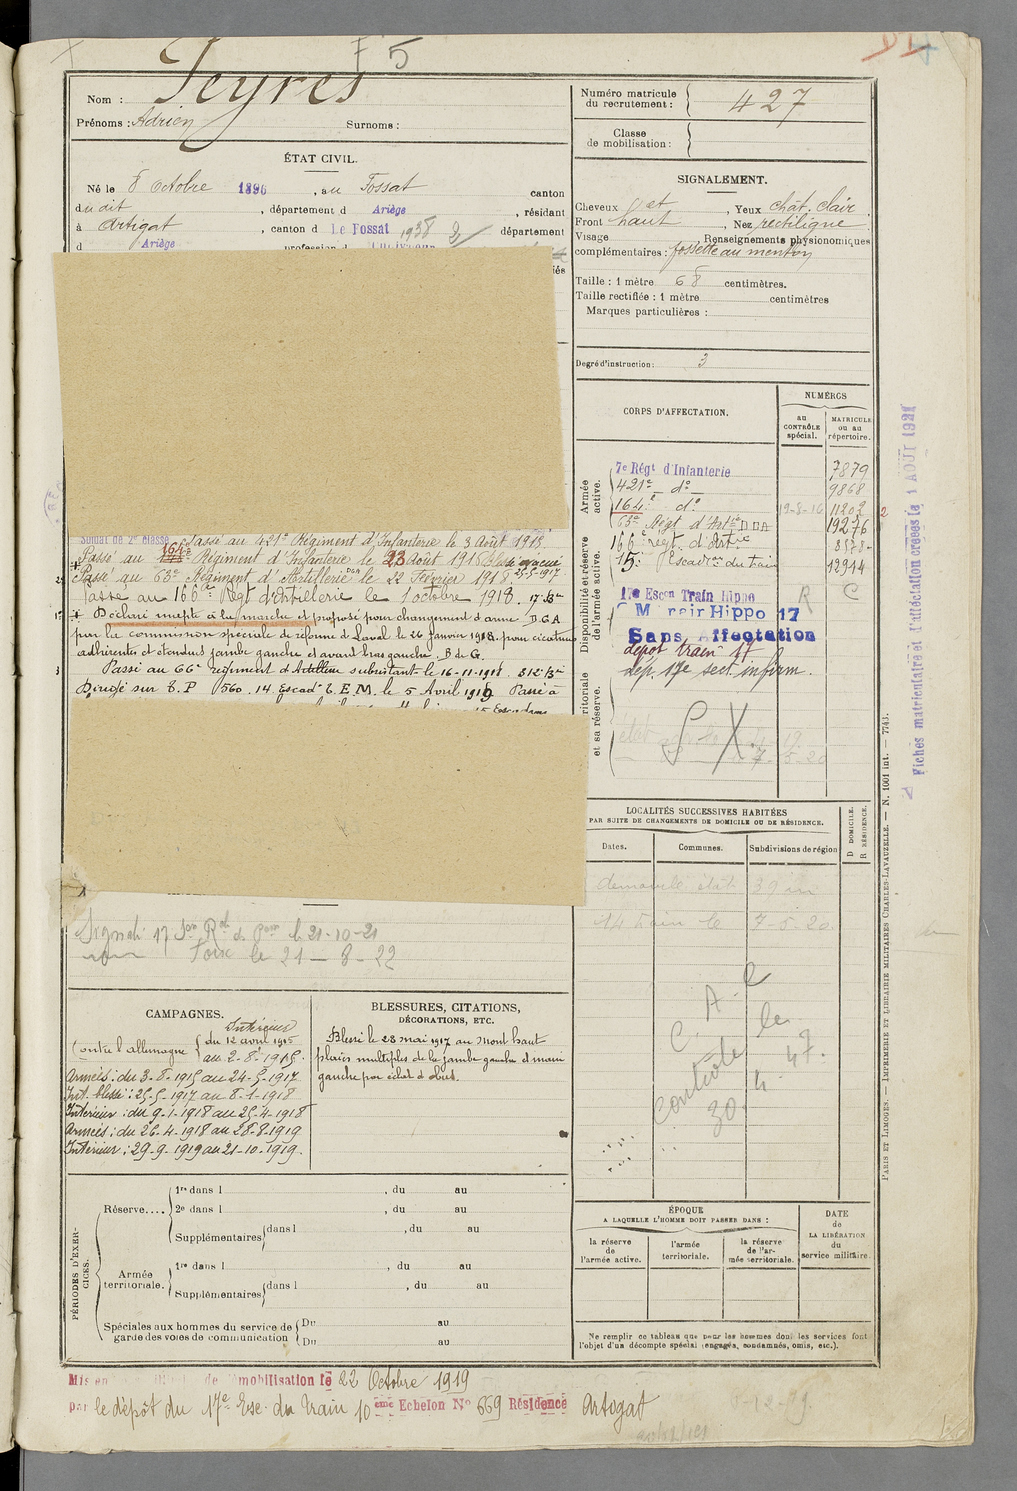 F 5
Nom : Peyres
Prénoms : Adrien Surnoms :
ÉTAT CIVIL.
Né le 8 Octobre 1896, au Fossat canton
dudit, département d Ariège, résidant
à Artigat, canton d Le Fossat 1938 2 département
d Ariège profession d Cultivateur
Soldat de 2e classe Passé au 421e Régiment d'Infanterie le 3 Août 1915
Passé au 164e Régiment d'Infanterie le 23 Août 1916 Blessé évacué
25-5-1917
Passé au 63e Régiment d'Artillerie DCA le 22 Février 1918
Passé au 166e Régt d'Artillerie le 1 octobre 1918. 17e Bie
Déclaré inapte à la marche et proposé pour changement d'arme D.C.A
par la commission spéciale de réforme de Laval le 26 janvier 1918 pour cicatrices
adhérentes et étendues jambe gauche et avant bras gauche. B de G.
Passé au 66e régiment d'Artillerie subsistant le 16-11-1918 812e Bie
Dirigé sur T.P 560. 14 Escad T.E.M. le 5 Avril 1919 Passé à
le 21-10-21
le 21-8-22
CAMPAGNES.
Contre l'allemagne
Intérieur
du 12 avril 1915
au 2-8-1915.
Armées : du 3-8-1915 au 24-5-1917
Int. blessé : 25-5-1917 au 8-1-1918
Intérieur : du 9-1-1918 au 25-4-1918
Armées : du 26-4-1918 au 28-8-1919
Intérieur : 29-9-1919 au 21-10-1919.
BLESSURES, CITATIONS,
DÉCORATIONS, ETC.
Blessé le 23 mai 1917 au Mont haut
plaies multiples de la jambe gauche et main
gauche par éclat d'obus.
PÉRIODES D'EXERCICES.
Réserve....
1re dans l , du au
2e dans l , du au
Supplémentaires dans l , du au
Armée
territoriale.
1re dans l , du au
Supplémentaires dans l , du au
Spéciales aux hommes du service de
garde des voies de communication
Du au
Du au
Numéro matricule
du recrutement : 427
Classe
de mobilisation :
SIGNALEMENT.
Cheveux ct, Yeux chât. clair
Front haut, Nez rectiligne
Visage Renseignements physionomiques
complémentaires : fossette au menton
Taille : 1 mètre 68 centimètres.
Taille rectifiée : 1 mètre centimètres
Marques particulières :
Degré d'instruction : 3
CORPS D'AFFECTATION.
NUMÉROS
au
CONTRÔLE
spécial.
MATRICULE
ou au
répertoire.
Armée
active.
7e Régt d'Infanterie 7879
421e do 9868
164e do 19-8-16 11202
63e Régt d'Artie DCA 19276
166e régt d'artie 8578
15e Escadron du train 12914
Disponibilité et réserve
de l'armée active.
17e Escon Train Hippo R C
Hippo 17
Sans Affectation
dépôt train 17
dép. 17e sect. infirm.
et sa réserve.
7-5-20
LOCALITÉS SUCCESSIVES HABITÉES
PAR SUITE DE CHANGEMENTS DE DOMICILE OU DE RÉSIDENCE.
Dates. Communes. Subdivisions de région
D DOMICILE.
R RÉSIDENCE.
demande état
14 train le 7-5-20.
C. A. R
Contrôle le
30. 4. 47.
ÉPOQUE
A LAQUELLE L'HOMME DOIT PASSER DANS :
la réserve
de
l'armée active.
l'armée
territoriale.
la réserve
de l'ar-
mée territoriale.
DATE
de
LA LIBÉRATION
du
service militaire.
Ne remplir ce tableau que pour les hommes dont les services font
l'objet d'un décompte spécial (engagés, condamnés, omis, etc.).
Mis en de démobilisation le 22 Octobre 1919
par le dépôt du 17e Esc. du Train 10 ème Echelon No 669 Résidence Artigat
Fiches matriculaire et d'affectation créées le 1 AOUT 1921
PARIS ET LIMOGES. — IMPRIMERIE ET LIBRAIRIE MILITAIRES CHARLES-LAVAUZELLE. — N. 1001 int. — 7743.